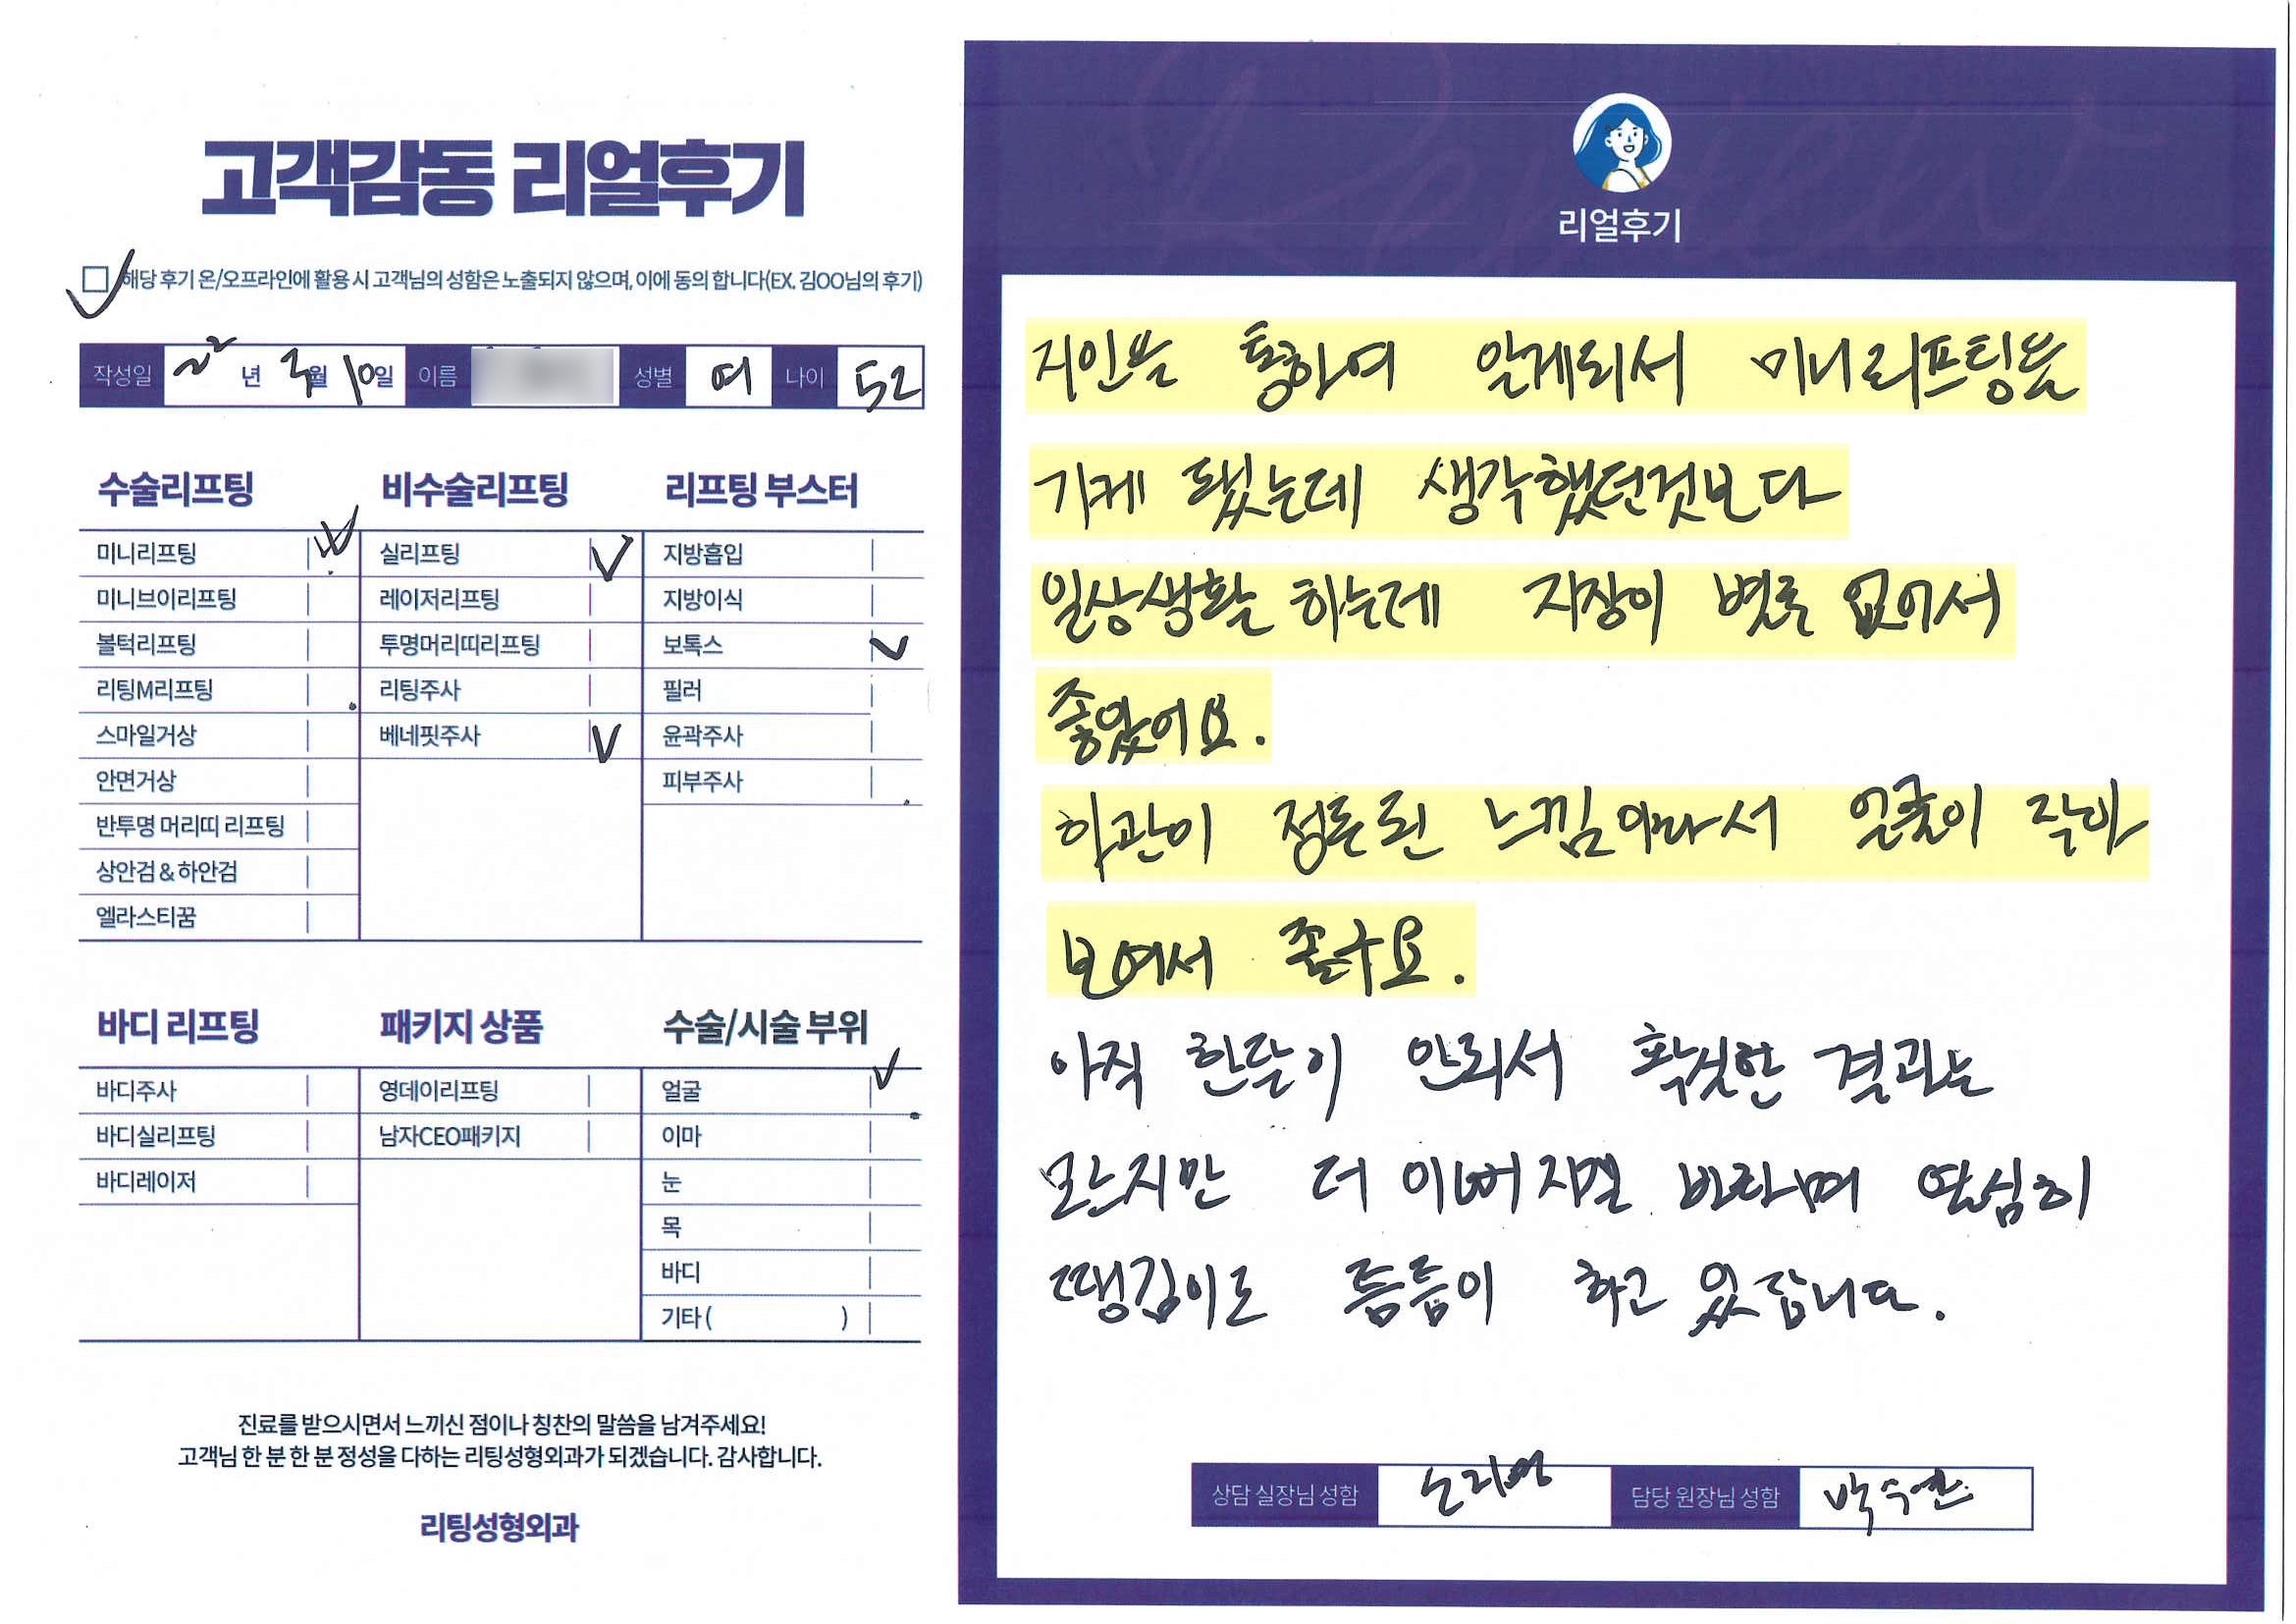 고객감동 리얼후기
해당 후기 온/오프라인에 활용 시 고객님의 성함은 노출되지 않으며, 이에 동의 합니다(EX. 김OO님의 후기)
작성일 22년 3월 10일 이름 성별 여 나이 52
수술리프팅
미니리프팅
미니브이리프팅
볼턱리프팅
리팅M리프팅
스마일거상
안면거상
반투명 머리띠 리프팅
상안검 & 하안검
엘라스티꿈
비수술리프팅
실리프팅
레이저리프팅
투명머리띠리프팅
리팅주사
베네핏주사
리프팅 부스터
지방흡입
지방이식
보톡스
필러
윤곽주사
피부주사
바디 리프팅
바디주사
바디실리프팅
바디레이저
패키지 상품
영데이리프팅
남자CEO패키지
수술/시술 부위
얼굴
이마
눈
목
바디
기타 ( )
진료를 받으시면서 느끼신 점이나 칭찬의 말씀을 남겨주세요!
고객님 한 분 한 분 정성을 다하는 리팅성형외과가 되겠습니다. 감사합니다.
리팅성형외과
리얼후기
지인을 통하여 알게되서 미니리프팅을
됐는데 생각했던것보다
일상생활 하는데 지장이 별로 없어서
좋았어요.
하관이 정돈된 느낌이라서 얼굴이 작아
보여서 좋구요.
아직 한달이 안되서 확실한 결과는
모르지만 더 이뻐지길 바라며 열심히
땡김이도 틈틈이 하고 있답니다.
상담 실장님 성함
담당 원장님 성함